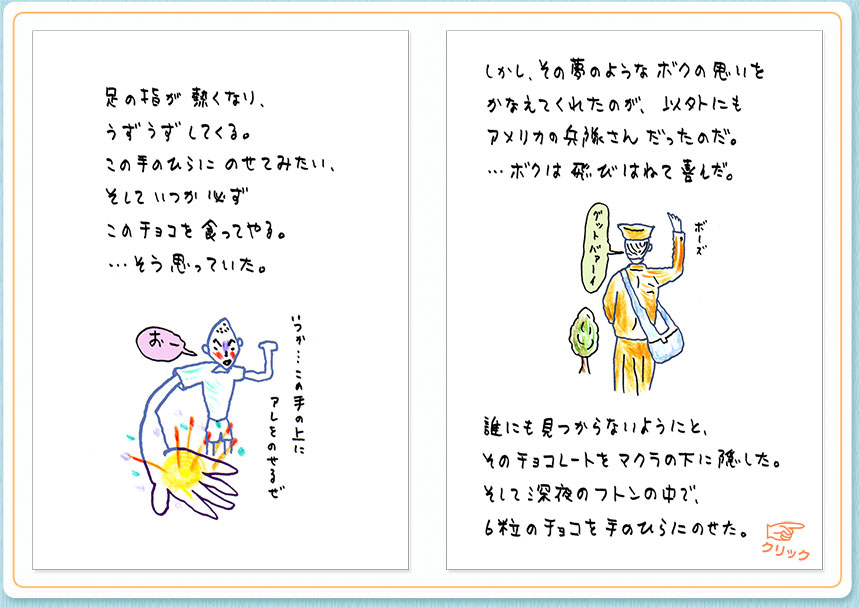 足の指が 熱くなり、
うずうずしてくる。
この手のひらに のせてみたい、
そして いつか 必ず
このチョコを 食ってやる。
…そう思っていた。
おー
いつか…この手の上に
アレをのせるぜ
しかし、その夢のような ボクの思いを
かなえてくれたのが、以外にも
アメリカの兵隊さん だったのだ。
…ボクは 飛びはねて 喜んだ。
グットバァーイ
ボーズ
誰にも見つからないようにと、
そのチョコレートを マクラの下に隠した。
そして深夜のフトンの中で、
6粒のチョコを 手のひらにのせた。
クリック